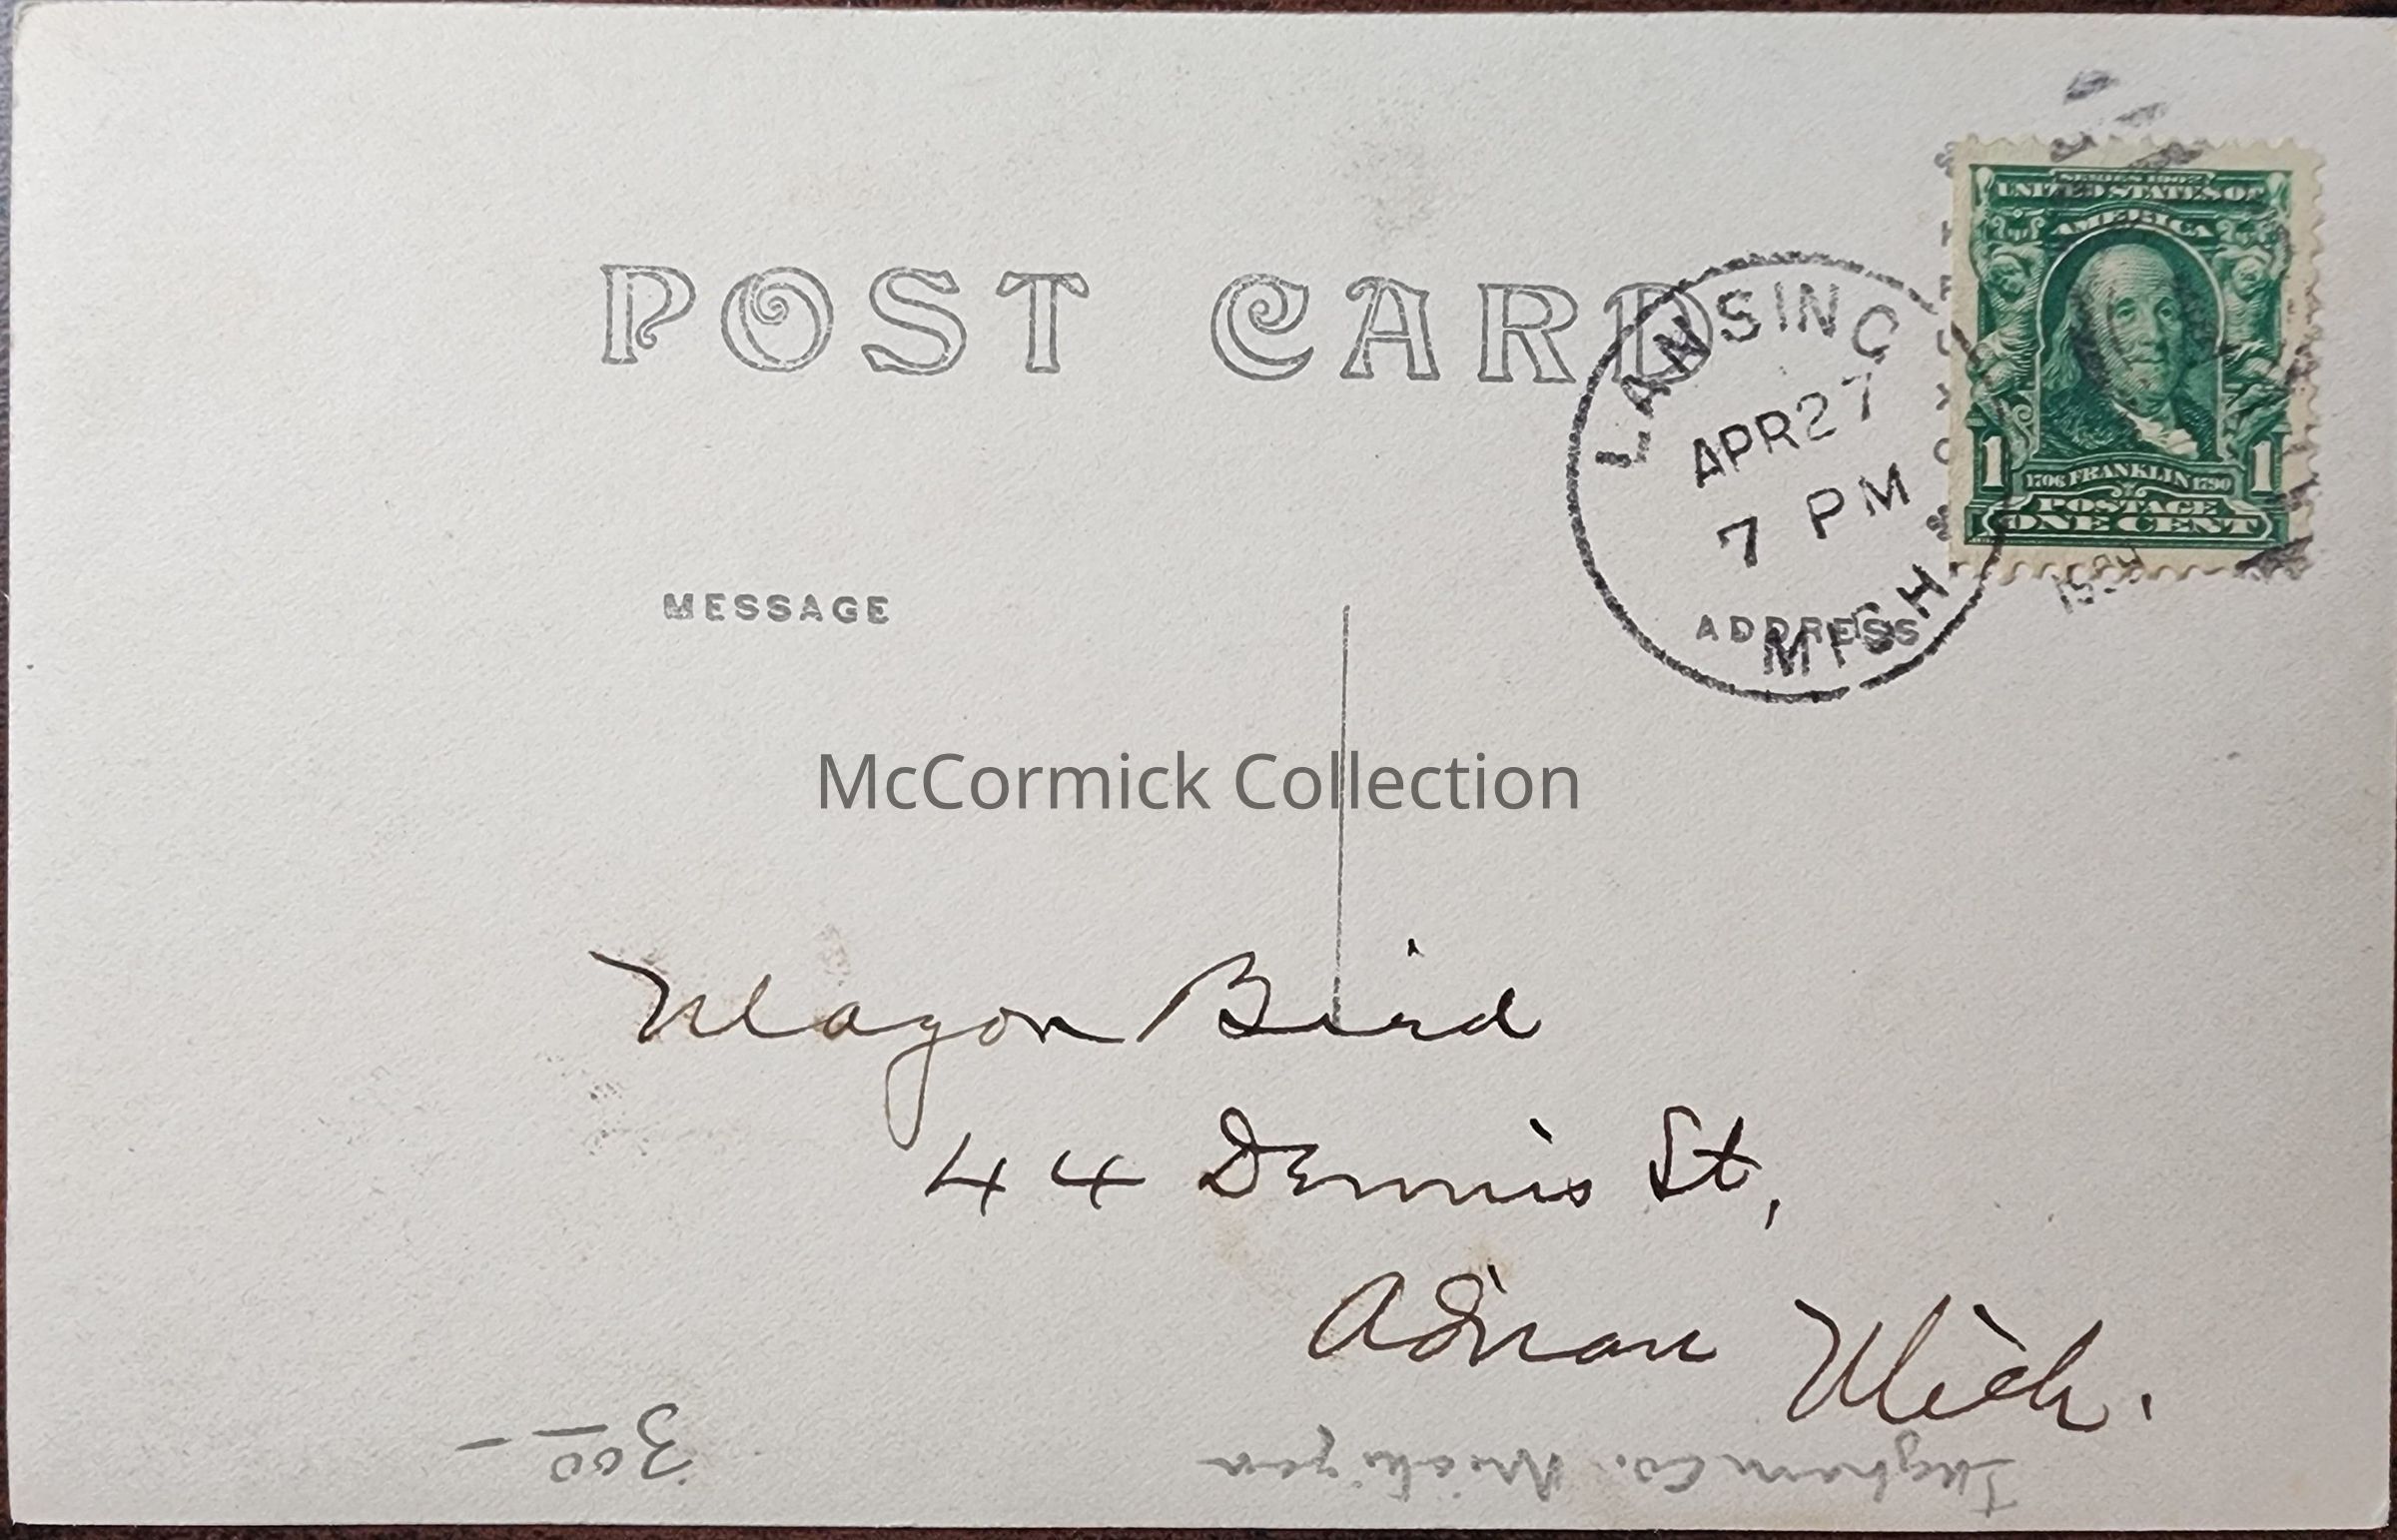 POST CARD
LANSING
APR 27
7 PM
MICH
SERIES 1902
UNITED STATES OF
AMERICA
1706 FRANKLIN 1790
1 1
POSTAGE
ONE CENT
MESSAGE
ADDRESS
McCormick Collection
Magon Bird
44 Dennis St,
Adrian Mich.
Ingham Co. Michigan
3.00 -